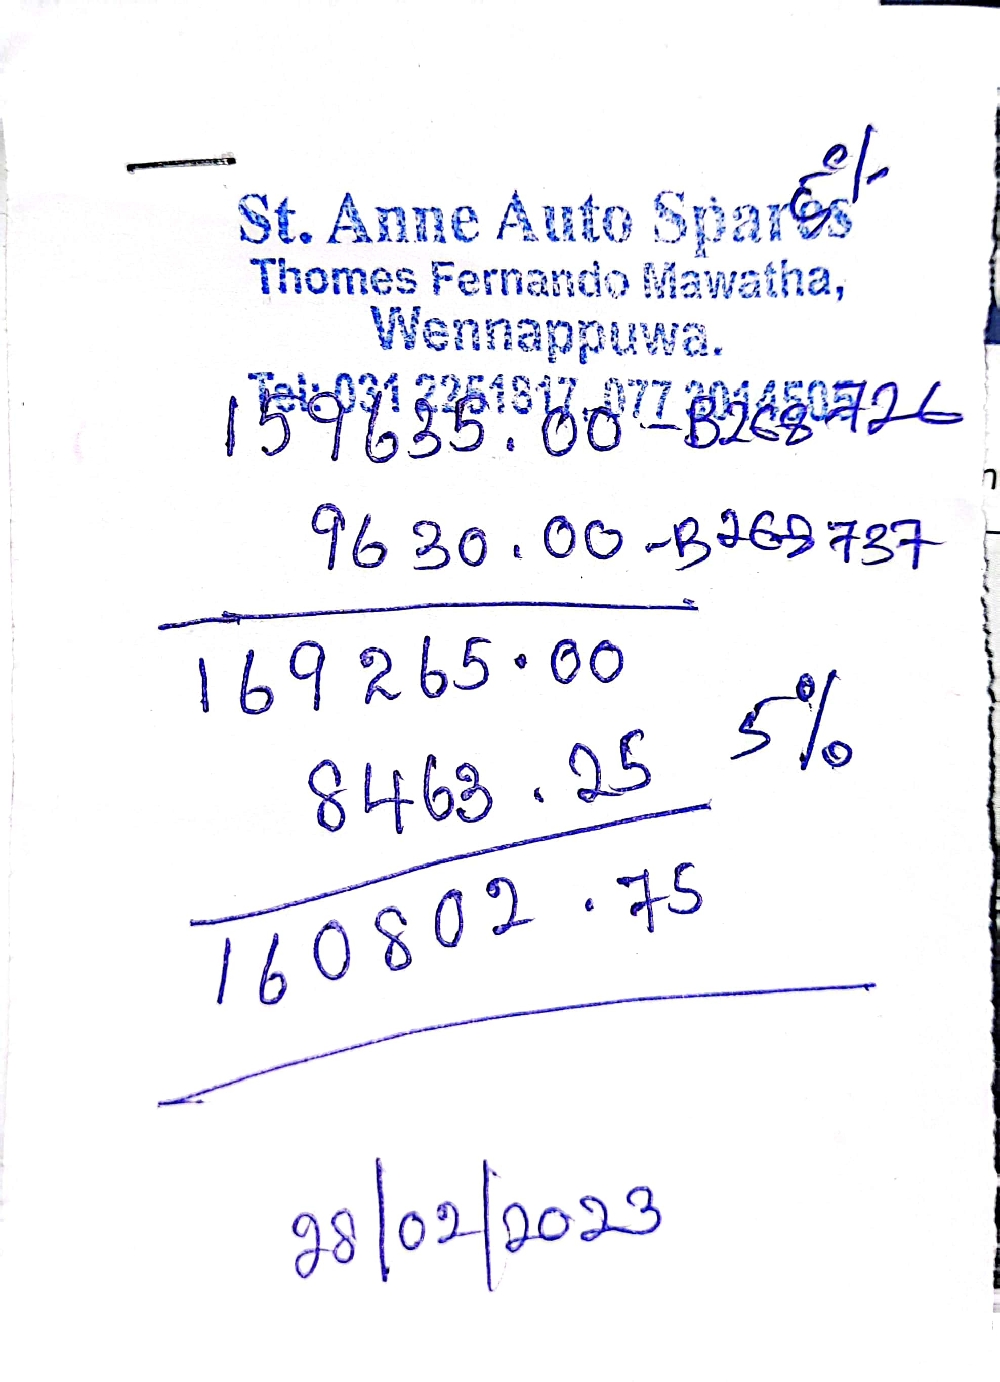 5%
St. Anne Auto Spares
Thomes Fernando Mawatha,
Wennappuwa.
Tel: 031 2251817, 077 3014505
159635.00 - B268726
9630.00 - B268737
169265.00
8463.25 5%
160802.75
28/02/2023